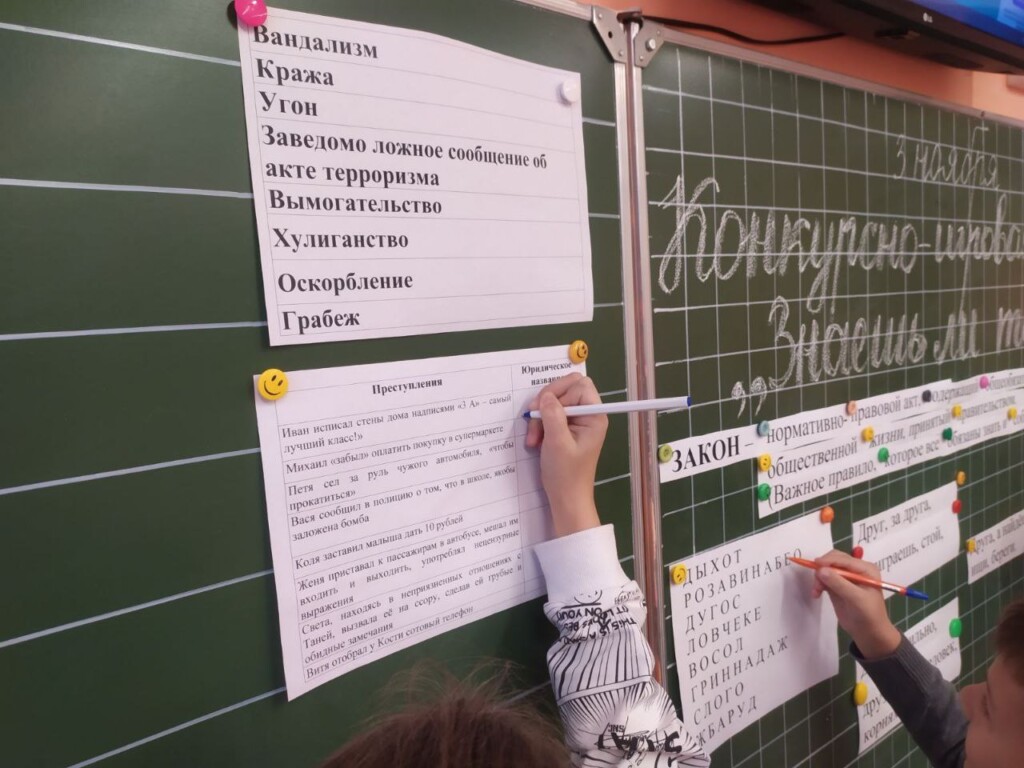 Вандализм
Кража
Угон
Заведомо ложное сообщение об
акте терроризма
Вымогательство
Хулиганство
Оскорбление
Грабеж
Преступления
Юридическое
Иван исписал стены дома надписями «3 А» – самый
лучший класс!»
Михаил «забыл» оплатить покупку в супермаркете
Петя сел за руль чужого автомобиля, «чтобы
прокатиться»
Вася сообщил в полицию о том, что в школе, якобы
заложена бомба
Коля заставил малыша дать 10 рублей
Женя приставал к пассажирам в автобусе, мешал им
входить и выходить, употреблял нецензурные
выражения
Света, находясь в неприязненных отношениях с
Таней, вызвала её на ссору, сделав ей грубые и
обидные замечания
Витя отобрал у Кости сотовый телефон
3 ноября
Конкурсно-игрова
„Знаешь ли т
ЗАКОН – нормативно-правовой акт, содержащий
общественной жизни, принятый правительством,
Важное правило, которое все обязаны знать и
ДЫХОТ
РОЗАВИНАБЕО
ДУГОС
ЛОВЧЕКЕ
ВОСОЛ
ГРИННАДАЖ
СЛОГО
ЖБАРУД
Друг, за друга,
играешь, стой,
друга, а найдёшь
ищи, береги.
THIS IS
YOU